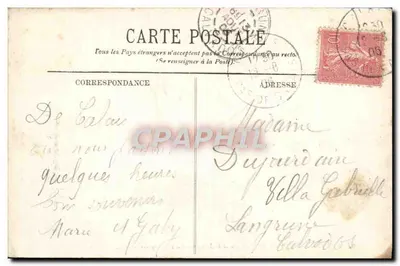 CARTE POSTALE
Tous les Pays étrangers n'acceptent pas la Correspondance au recto.
(Se renseigner à la Poste).
CORRESPONDANCE
ADRESSE
De Calais
nous
quelques heures
bons souvenirs
Marie et Gaby
Madame
Dujourdain
Villa Gabrielle
Langrune
Calvados
CPAPHIL